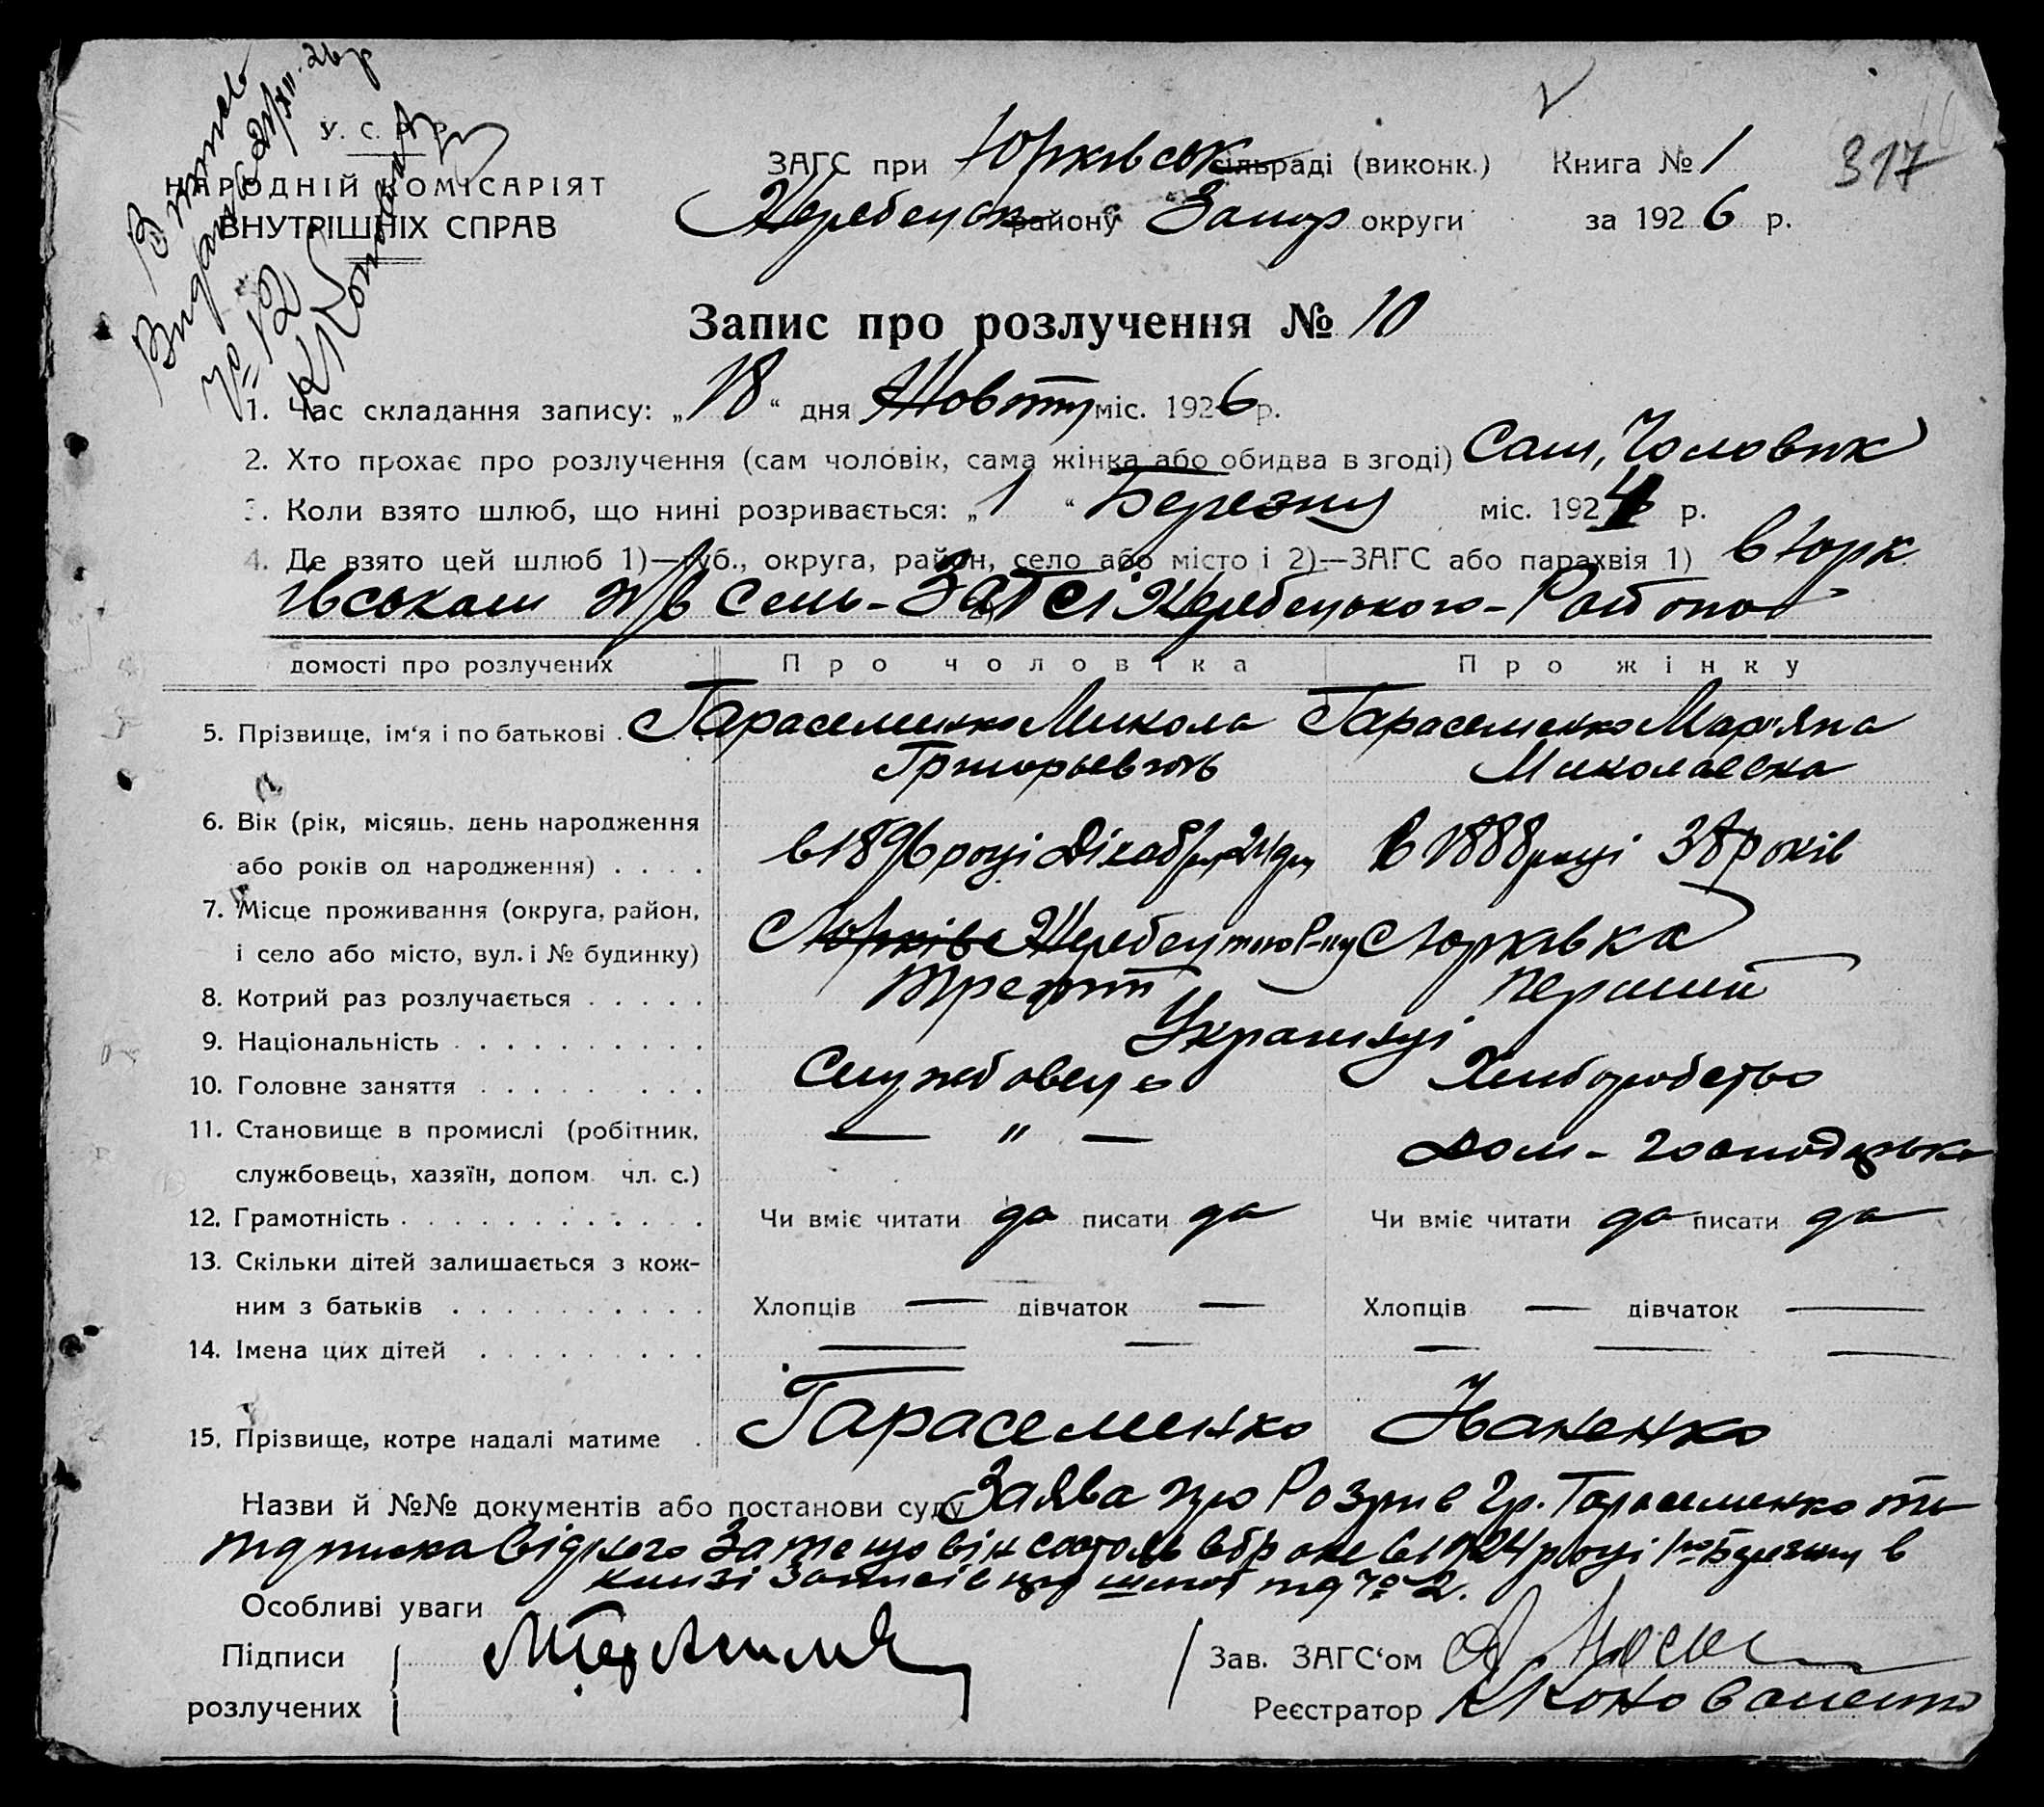 Витяг
Видано 21/XII 26 р
№ 12
ККоновал
У. С. Р. Р.
НАРОДНІЙ КОМІСАРІЯТ
ВНУТРІШНІХ СПРАВ
ЗАГС при Юрківськ сільраді (виконк.) Книга № 1 317
Жеребецьк району Запор округи за 1926 р.
Запис про розлучення № 10
1. Час складання запису: „18“ дня Жовтня міс. 1926 р.
2. Хто прохає про розлучення (сам чоловік, сама жінка або обидва в згоді) Сам, Чоловик
3. Коли взято шлюб, що нині розривається: „1“ Березня міс. 1924 р.
4. Де взято цей шлюб 1)—губ., округа, район, село або місто і 2)—ЗАГС або парахвія 1) в Юрк
івськам Сель-ЗАГСі Жеребецького-Району
домості про розлучених Про чоловіка Про жінку
5. Прізвище, ім'я і по батькові . Тарасеменко Микола Тарасеменко Мар'яна
Григорьевичь Миколаевна
6. Вік (рік, місяць, день народження
або років од народження) . . . . в 1896 році Дікабря 24 дня в 1888 році 38 років
7. Місце проживання (округа, район,
і село або місто, вул. і № будинку) С Юрківка Жеребецького Р-ну С Юрківка
8. Котрий раз розлучається . . . . . третій перший
9. Національність . . . . . . . . . . Украинці
10. Головне заняття . . . . . . . . Службовець Хлиборобство
11. Становище в промислі (робітник,
службовець, хазяїн, допом. чл. с.) — " — Дом-господарька
12. Грамотність . . . . . . . . . . . . Чи вміє читати да писати да Чи вміє читати да писати да
13. Скільки дітей залишається з кож-
ним з батьків . . . . . . . . . . Хлопців — дівчаток — Хлопців — дівчаток —
14. Імена цих дітей . . . . . . . . . — — — — —
15. Прізвище, котре надалі матиме . Тарасеменко Иваненко
Назви й №№ документів або постанови суду Заява про Розрив гр. Тарасеменко та
підписка від нього За те що він состояв в браке в 1924 році 1го Березня в
книзі Записів про шлюб під № 2.
Особливі уваги
Підписи
розлучених
Зав. ЗАГС'ом
Реєстратор ККоноваленко